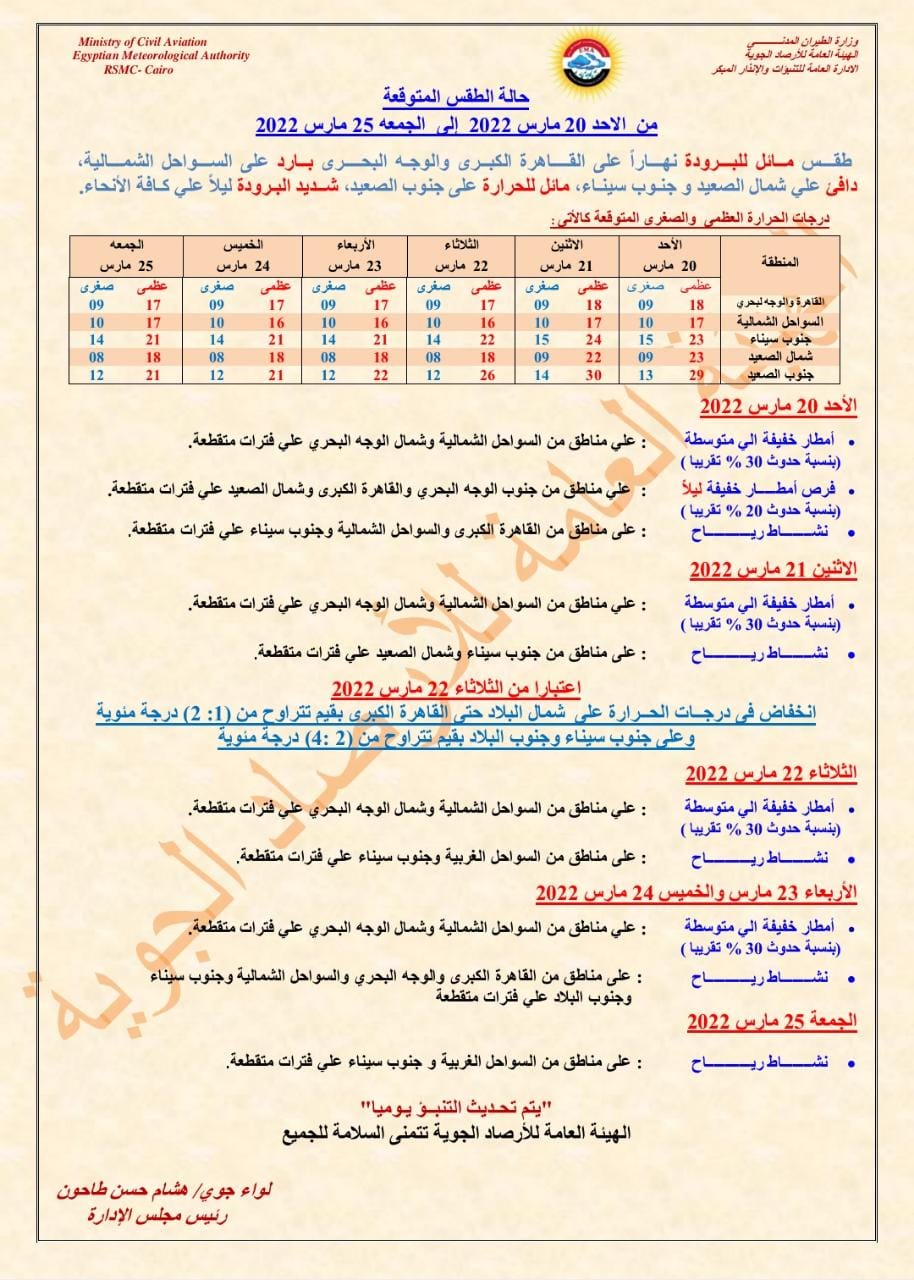 Ministry of Civil Aviation
Egyptian Meteorological Authority
RSMC- Cairo
وزارة الطيران المدنـــــي
الهيئة العامة للأرصاد الجوية
الادارة العامة للتنبؤات والإنذار المبكر
EMA
حالة الطقس المتوقعة
من الاحد 20 مارس 2022 إلى الجمعه 25 مارس 2022
طقــس مــائل للبـرودة نهــاراً على القــاهرة الكبـرى والوجه البحـرى بــارد على الســواحل الشمــالية،
دافئ علي شمال الصعيد و جنـوب سينـاء، مائل للحرارة على جنوب الصعيد، شـديد البرودة ليلاً علي كافة الأنحاء.
درجات الحرارة العظمى والصغرى المتوقعة كالأتي:
المنطقة الأحد الاثنين الثلاثاء الأربعاء الخميس الجمعه
20 مارس 21 مارس 22 مارس 23 مارس 24 مارس 25 مارس
عظمى صغرى عظمى صغرى عظمى صغرى عظمى صغرى عظمى صغرى عظمى صغرى
القاهرة والوجه لبحري 18 09 18 09 17 09 17 09 17 09 17 09
السواحل الشمالية 17 10 17 10 16 10 16 10 16 10 17 10
جنوب سيناء 23 15 24 15 22 14 21 14 21 14 21 14
شمال الصعيد 23 09 22 09 18 08 18 08 18 08 18 08
جنوب الصعيد 29 13 30 14 26 12 22 12 21 12 21 12
الأحد 20 مارس 2022
• أمطار خفيفة الي متوسطة : علي مناطق من السواحل الشمالية وشمال الوجه البحري علي فترات متقطعة.
(بنسبة حدوث 30 % تقريبا )
• فرص أمطــــار خفيفة ليلاً : علي مناطق من جنوب الوجه البحري والقاهرة الكبرى وشمال الصعيد علي فترات متقطعة.
(بنسبة حدوث 20 % تقريبا )
• نشـــــاط ريــــــــاح : على مناطق من القاهرة الكبرى والسواحل الشمالية وجنوب سيناء علي فترات متقطعة.
الاثنين 21 مارس 2022
• أمطار خفيفة الي متوسطة : علي مناطق من السواحل الشمالية وشمال الوجه البحري علي فترات متقطعة.
(بنسبة حدوث 30 % تقريبا )
• نشـــــاط ريــــــــاح : على مناطق من جنوب سيناء وشمال الصعيد علي فترات متقطعة.
اعتبارا من الثلاثاء 22 مارس 2022
انخفاض في درجــات الحــرارة على شمال البلاد حتى القاهرة الكبرى بقيم تتراوح من (1: 2) درجة مئوية
وعلى جنوب سيناء وجنوب البلاد بقيم تتراوح من (2 :4) درجة مئوية
الثلاثاء 22 مارس 2022
• أمطار خفيفة الي متوسطة : علي مناطق من السواحل الشمالية وشمال الوجه البحري علي فترات متقطعة.
(بنسبة حدوث 30 % تقريبا )
• نشـــــاط ريــــــــاح : على مناطق من السواحل الغربية وجنوب سيناء علي فترات متقطعة.
الأربعاء 23 مارس والخميس 24 مارس 2022
• أمطار خفيفة الي متوسطة : علي مناطق من السواحل الشمالية وشمال الوجه البحري علي فترات متقطعة.
(بنسبة حدوث 30 % تقريبا )
• نشـــــاط ريــــــــاح : على مناطق من القاهرة الكبرى والوجه البحري والسواحل الشمالية وجنوب سيناء
وجنوب البلاد علي فترات متقطعة
الجمعة 25 مارس 2022
• نشـــــاط ريــــــــاح : على مناطق من السواحل الغربية و جنوب سيناء علي فترات متقطعة.
"يتم تحـديث التنبــؤ يـوميا"
الهيئة العامة للأرصاد الجوية تتمنى السلامة للجميع
لواء جوي/ هشام حسن طاحون
رئيس مجلس الإدارة
الهيئة العامة للأرصاد الجوية